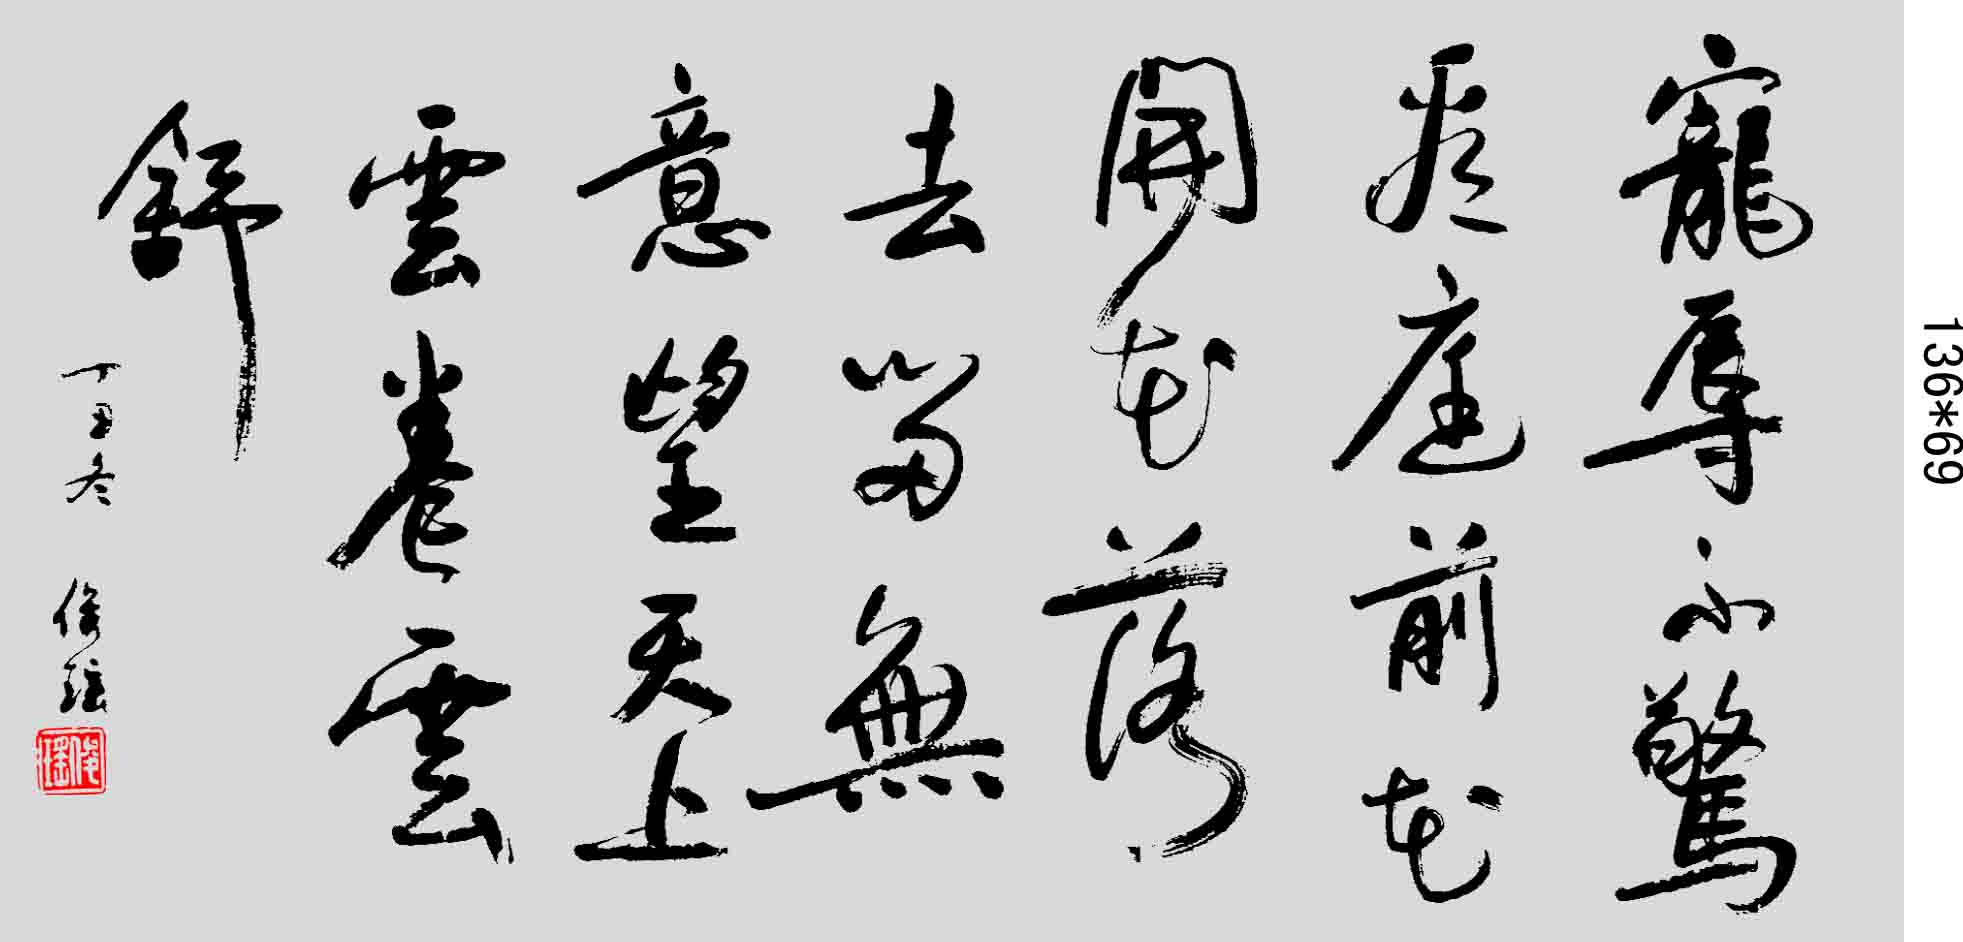 寵辱不驚
看庭前花
開花落
去留無
意望天上
雲卷雲
舒
丁丑冬
136*69